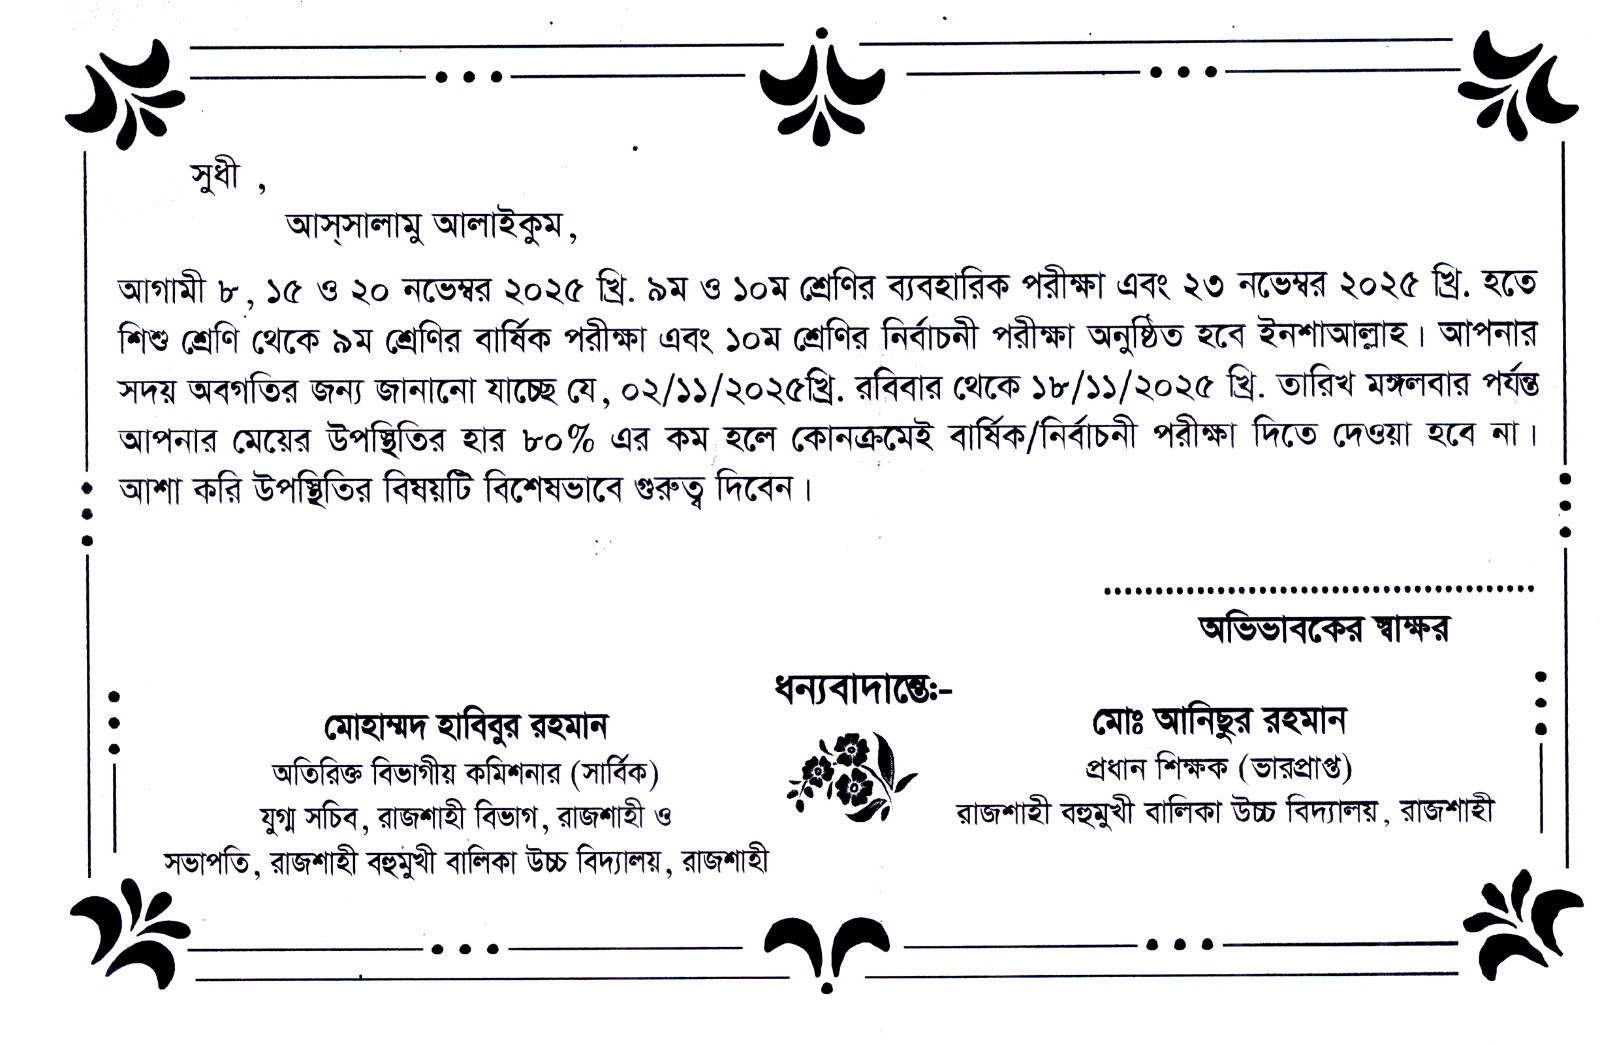 সুধী ,
আস্সালামু আলাইকুম,
আগামী ৮, ১৫ ও ২০ নভেম্বর ২০২৫ খ্রি. ৯ম ও ১০ম শ্রেণির ব্যবহারিক পরীক্ষা এবং ২৩ নভেম্বর ২০২৫ খ্রি. হতে
শিশু শ্রেণি থেকে ৯ম শ্রেণির বার্ষিক পরীক্ষা এবং ১০ম শ্রেণির নির্বাচনী পরীক্ষা অনুষ্ঠিত হবে ইনশাআল্লাহ। আপনার
সদয় অবগতির জন্য জানানো যাচ্ছে যে, ০২/১১/২০২৫খ্রি. রবিবার থেকে ১৮/১১/২০২৫ খ্রি. তারিখ মঙ্গলবার পর্যন্ত
আপনার মেয়ের উপস্থিতির হার ৮০% এর কম হলে কোনক্রমেই বার্ষিক/নির্বাচনী পরীক্ষা দিতে দেওয়া হবে না।
আশা করি উপস্থিতির বিষয়টি বিশেষভাবে গুরুত্ব দিবেন।
অভিভাবকের স্বাক্ষর
ধন্যবাদান্তে:-
মোহাম্মদ হাবিবুর রহমান
অতিরিক্ত বিভাগীয় কমিশনার (সার্বিক)
যুগ্ম সচিব, রাজশাহী বিভাগ, রাজশাহী ও
সভাপতি, রাজশাহী বহুমুখী বালিকা উচ্চ বিদ্যালয়, রাজশাহী
মোঃ আনিছুর রহমান
প্রধান শিক্ষক (ভারপ্রাপ্ত)
রাজশাহী বহুমুখী বালিকা উচ্চ বিদ্যালয়, রাজশাহী